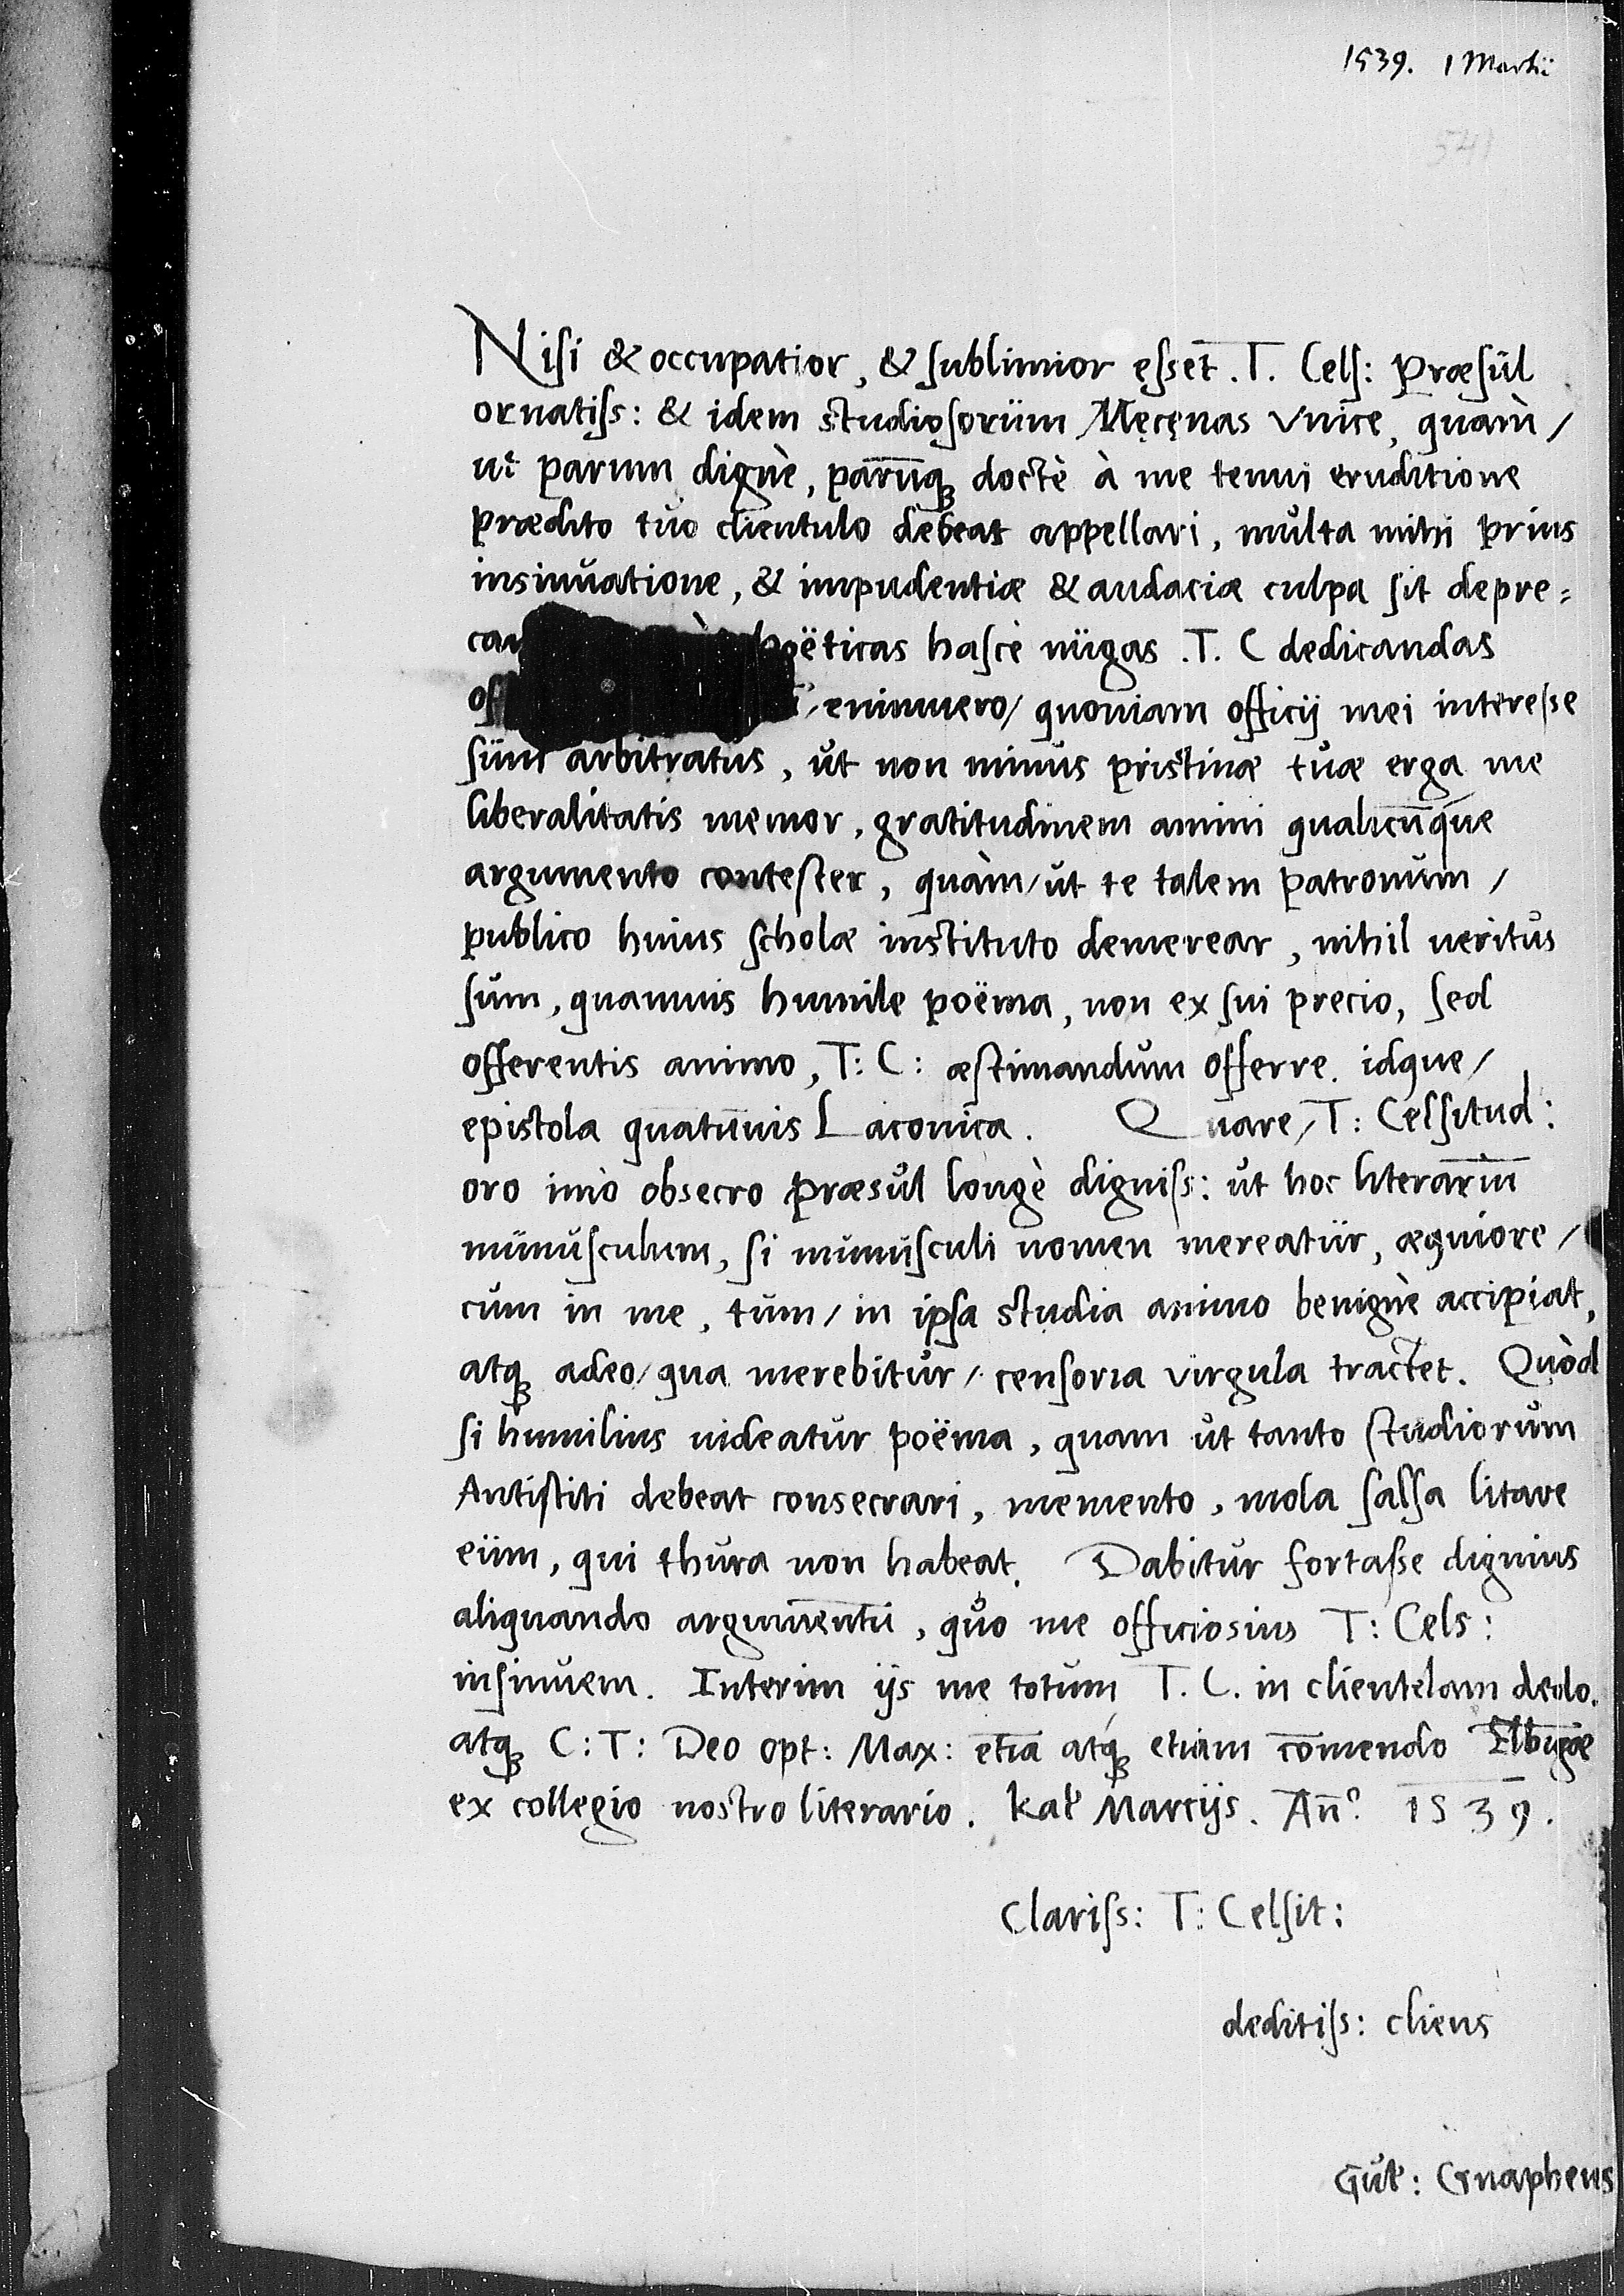 1539. 1 Martii
541
Nisi & occupatior, & sublimior esset .T. Cels: Præsul
ornatiss: & idem studiosorum Męcęnas vnice, quàm/
ut parum dignè, parūq̃ doctè à me tenui eruditione
prædito tuo clientulo debeat appellari, multa mihi prius
insinuatione, & impudentiæ & audaciæ culpa sit depre=
poëticas hasce nugas .T. C dedicandas
/enimuero/ quoniam officij mei interesse
sum arbitratus, ut non minus pristinæ tuæ erga me
liberalitatis memor, gratitudinem animi qualicūque
argumento contester, quàm/ut te talem patronum/
publico huius scholæ instituto demerear, nihil ueritus
sum, quamuis humile poëma, non ex sui precio, sed
offerentis animo, T: C: æstimandum offerre. idque/
epistola quatumuis Laconica. Quare/T: Celsitud:
oro imò obsecro Præsul longè digniss: ut hoc literariū
munusculum, si munusculi nomen mereatur, æquiore/
cum in me, tum/ in ipsa studia animo benignè accipiat,
atq̃ adeo/qua merebitur/ censoria virgula tractet. Quòd
si humilius uideatur poëma, quam ut tanto studiorum
Antistiti debeat consecrari, memento, mola salsa litare
eum, qui thura non habeat. Dabitur fortasse dignius
aliquando argumentū, quo me officiosius T: Cels:
insinuem. Interim ijs me totum T. C. in clientelam dedo.
atq̃ C: T: Deo opt: Max: etiā atq̃ etiam cōmendo Elbīgæ
ex collegio nostro literario. Kal Marcijs. Añº 1539.
Clariss: T: Celsit:
deditiss: cliens
Gul: Gnapheus